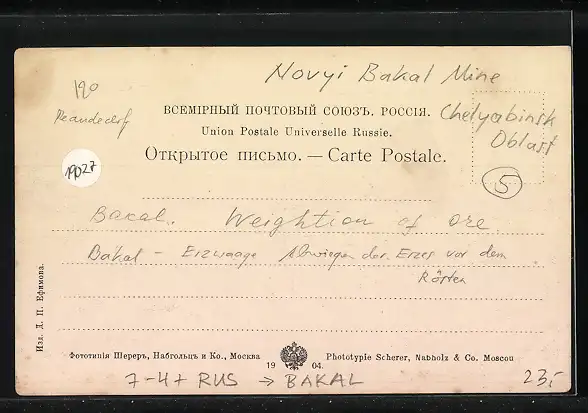 Novyi Bakal Mine
120
ВСЕМІРНЫЙ ПОЧТОВЫЙ СОЮЗЪ. РОССІЯ.
Chelyabinsk
Oblast
Union Postale Universelle Russie.
Открытое письмо. — Carte Postale.
19027
5
Bakal. Weightion of ore.
Bakal - Erzwaage Abwiegen des Erzes vor dem
Rösten
Изд. Д. П. Ефимова.
Фототипія Шереръ, Набгольцъ и Ко., Москва 1904. Phototypie Scherer, Nabholz & Co. Moscou
7-4+ RUS → BAKAL
23,-